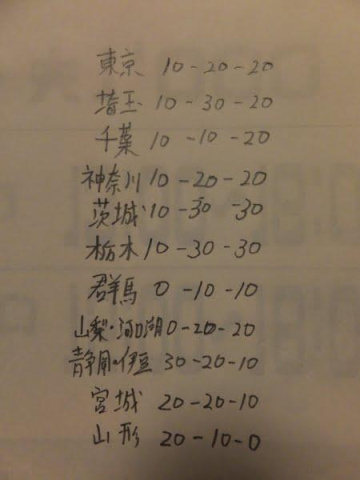 東京 10-20-20
埼玉 10-30-20
千葉 10-10-20
神奈川 10-20-20
茨城 10-30-30
栃木 10-30-30
群馬 0-10-10
山梨・河口湖 0-20-20
静岡・伊豆 30-20-10
宮城 20-20-10
山形 20-10-0